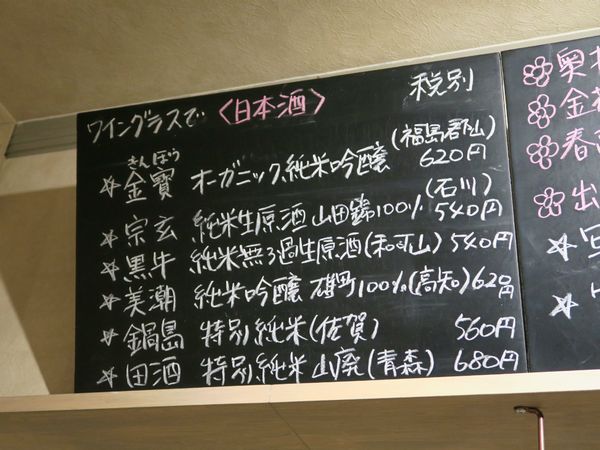 ワイングラスで 〈日本酒〉 税別
きんぽう
☆金寳 オーガニック純米吟醸 (福島郡山) 620円
☆宗玄 純米生原酒 山田錦100% (石川) 540円
☆黒牛 純米無ろ過生原酒(和可山) 540円
☆美潮 純米吟醸 雄町100%(高知) 620円
☆鍋島 特別純米(佐賀) 560円
☆田酒 特別純米 山廃(青森) 680円
奥
金
春
出